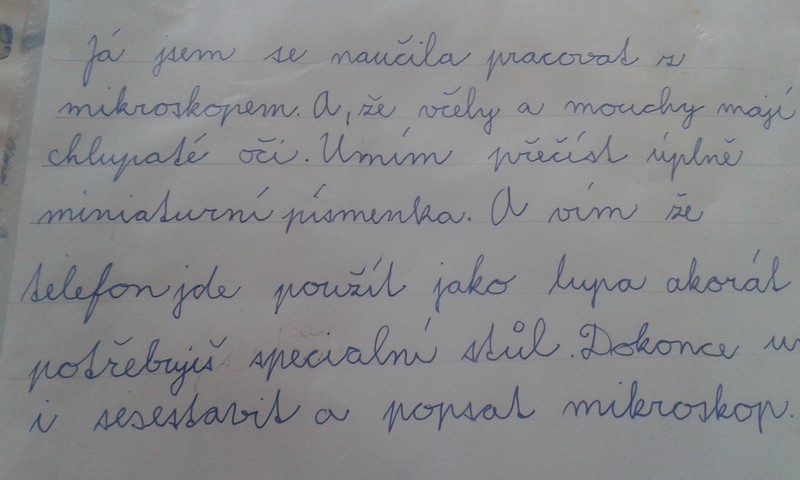 Já jsem se naučila pracovat s
mikroskopem. A, že včely a mouchy mají
chlupaté oči. Umím přečíst úplně
miniaturní písmenka. A vím že
telefon jde použít jako lupa akorát
potřebuješ specialní stůl. Dokonce
i sesestavit a popsat mikroskop.